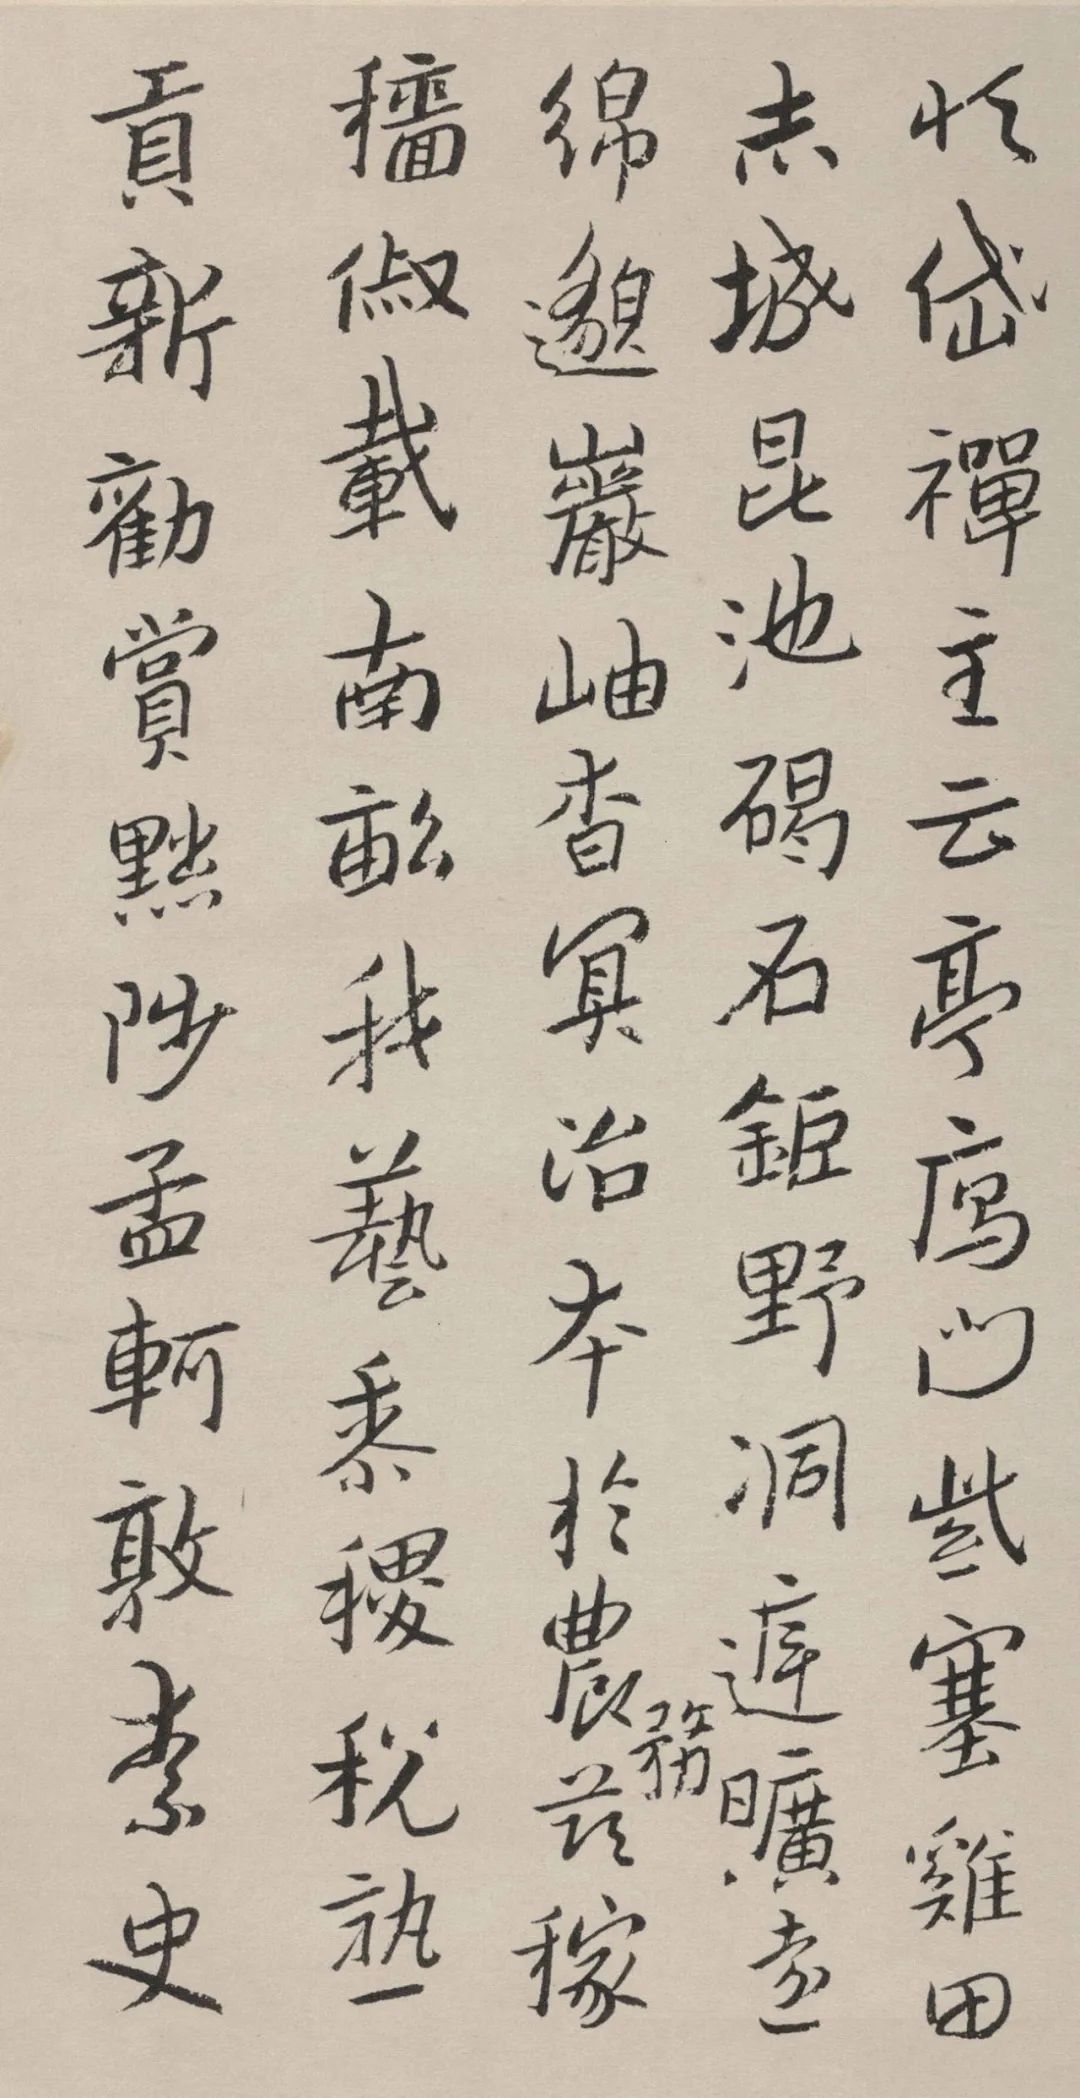 恒岱禪主云亭鴈門紫塞雞田
赤城昆池碣石鉅野洞遲曠遠
綿邈巖岫杳冥治本於農務茲稼
穡俶載南畝我藝黍稷稅熟
貢新勸賞黜陟孟軻敦素史